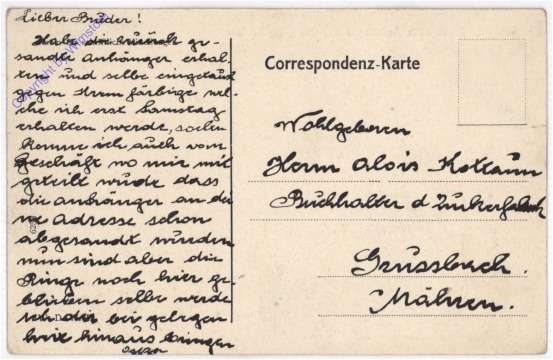 Lieber Bruder!
Habe die durch ge-
sandte Anhänger erhal-
ten und selbe eingetaus
gegen färbige wel-
che ich erst Samstag
erhalten werde, soeben
komme ich auch vom
Geschäft wo mir mit-
geteilt wurde dass
die Anhänger an dei
ne Adresse schon
abgesandt wurden
nun sind aber die
Ringe noch hier ge-
blieben selbe werde
ich dir bei gelegen
heit hinaus bringen
Correspondenz-Karte
Wohlgeboren
Herrn Alois
Buchhalter d Zuckerfabrik
Grussbach.
Mähren.
Copyright by Whmstock